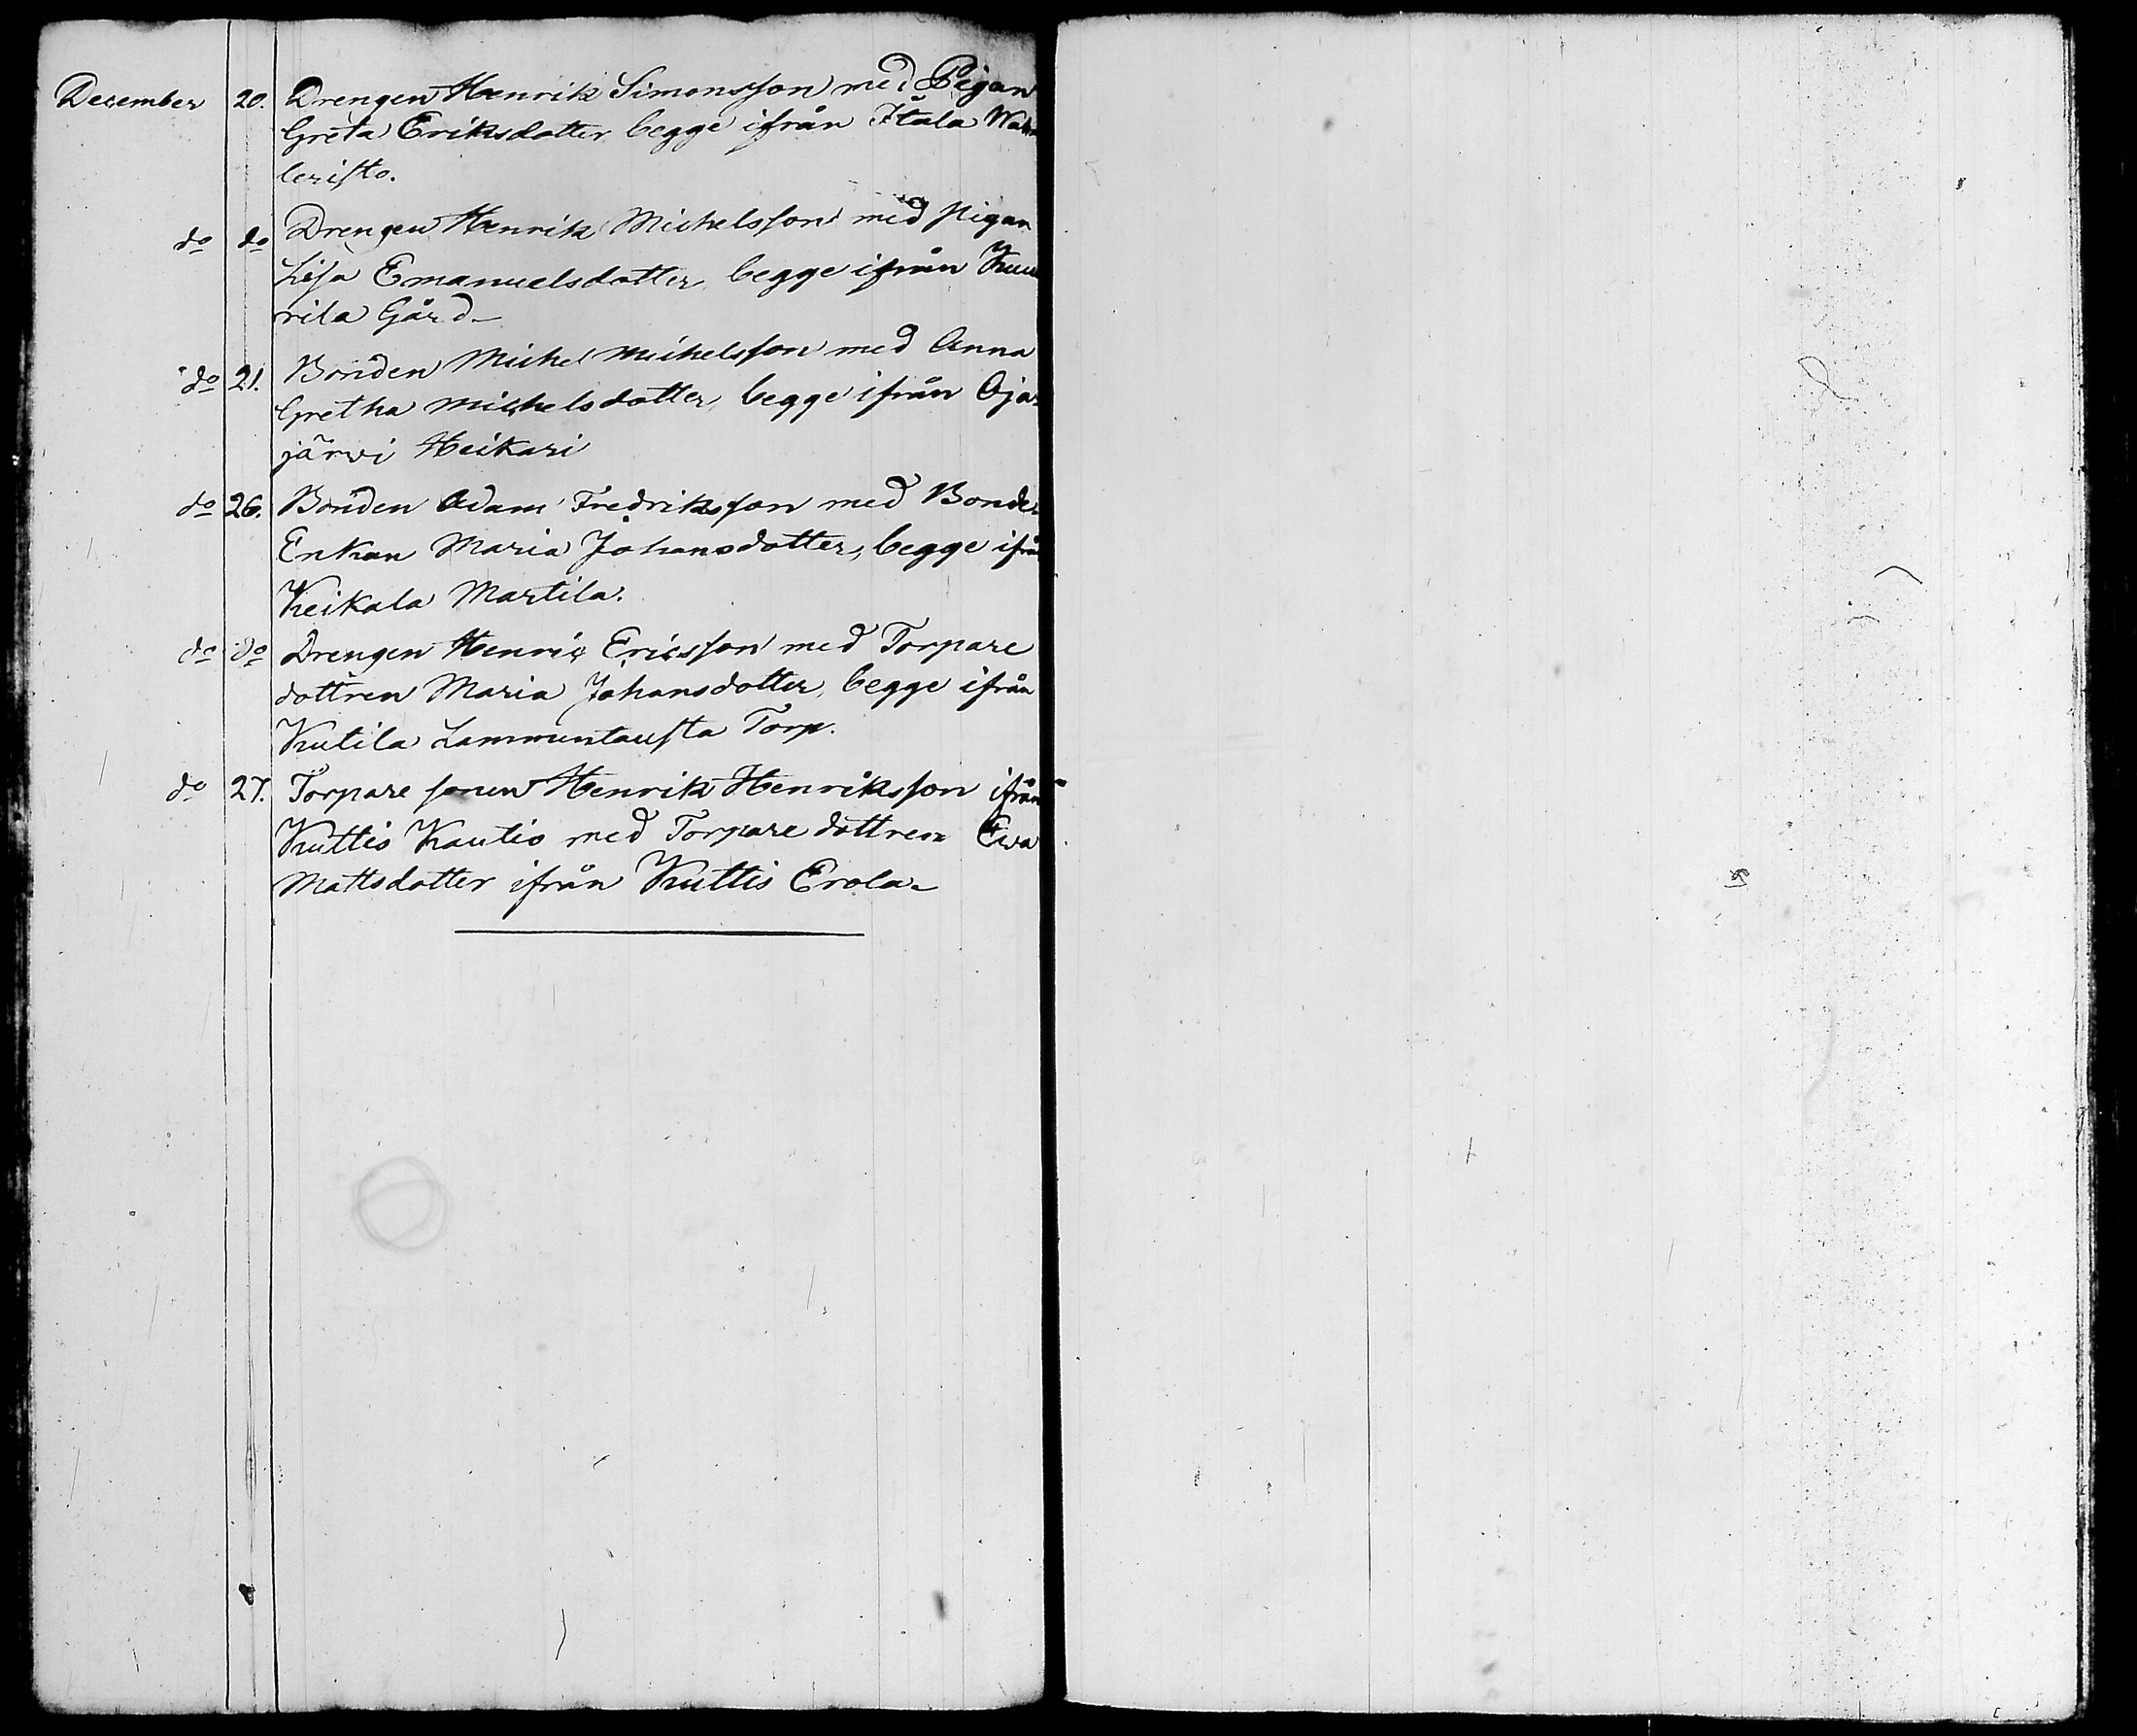 December 20. Drengen Henrik Simonsson med Pigan
Greta Eriksdotter begge ifrån Itala
leristo.
do do Drengen Henrik Michelsson med pigan
Lisa Emanuelsdotter, begge ifrån Kuu
rila Gård
do 21. Bonden Michel Michelsson med Anna
Gretha Michelsdotter, begge ifrån Oja-
järvi Heikari
do 26. Bonden Adam Fredriksson med Bonde-
Enkan Maria Johansdotter, begge ifrån
Keikala Martila.
do do Drengen Henric Ericsson med Torpare
dottren Maria Johansdotter, begge ifrån
Kutila Lammentausta Torp.
do 27. Torpare sonen Henrik Henriksson ifrån
Kuttis Kautio med Torpare dottren Eva
Mattsdotter ifrån Kuttis Erola